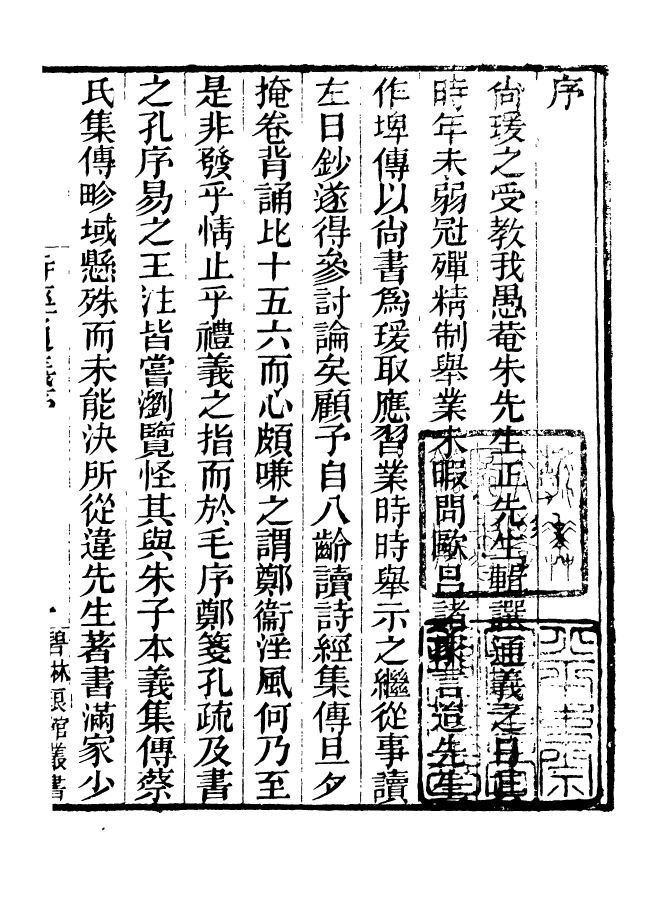 序
尙瑗之受教我愚菴朱先生正先生輯譔通義之日其
時年未弱冠殫精制舉業未暇問歐呂諸家言迨先生
作埤傳以尙書爲瑗取應習業時時舉示之繼從事讀
左日鈔遂得參討論矣顧予自八齡讀詩經集傳旦夕
掩卷背誦比十五六而心頗嗛之謂鄭衞淫風何乃至
是非發乎情止乎禮義之指而於毛序鄭箋孔疏及書
之孔序易之王注皆嘗瀏覽怪其與朱子本義集傳蔡
氏集傳畛域懸殊而未能決所從違先生著書滿家少
詩經通義序
碧林琅館叢書